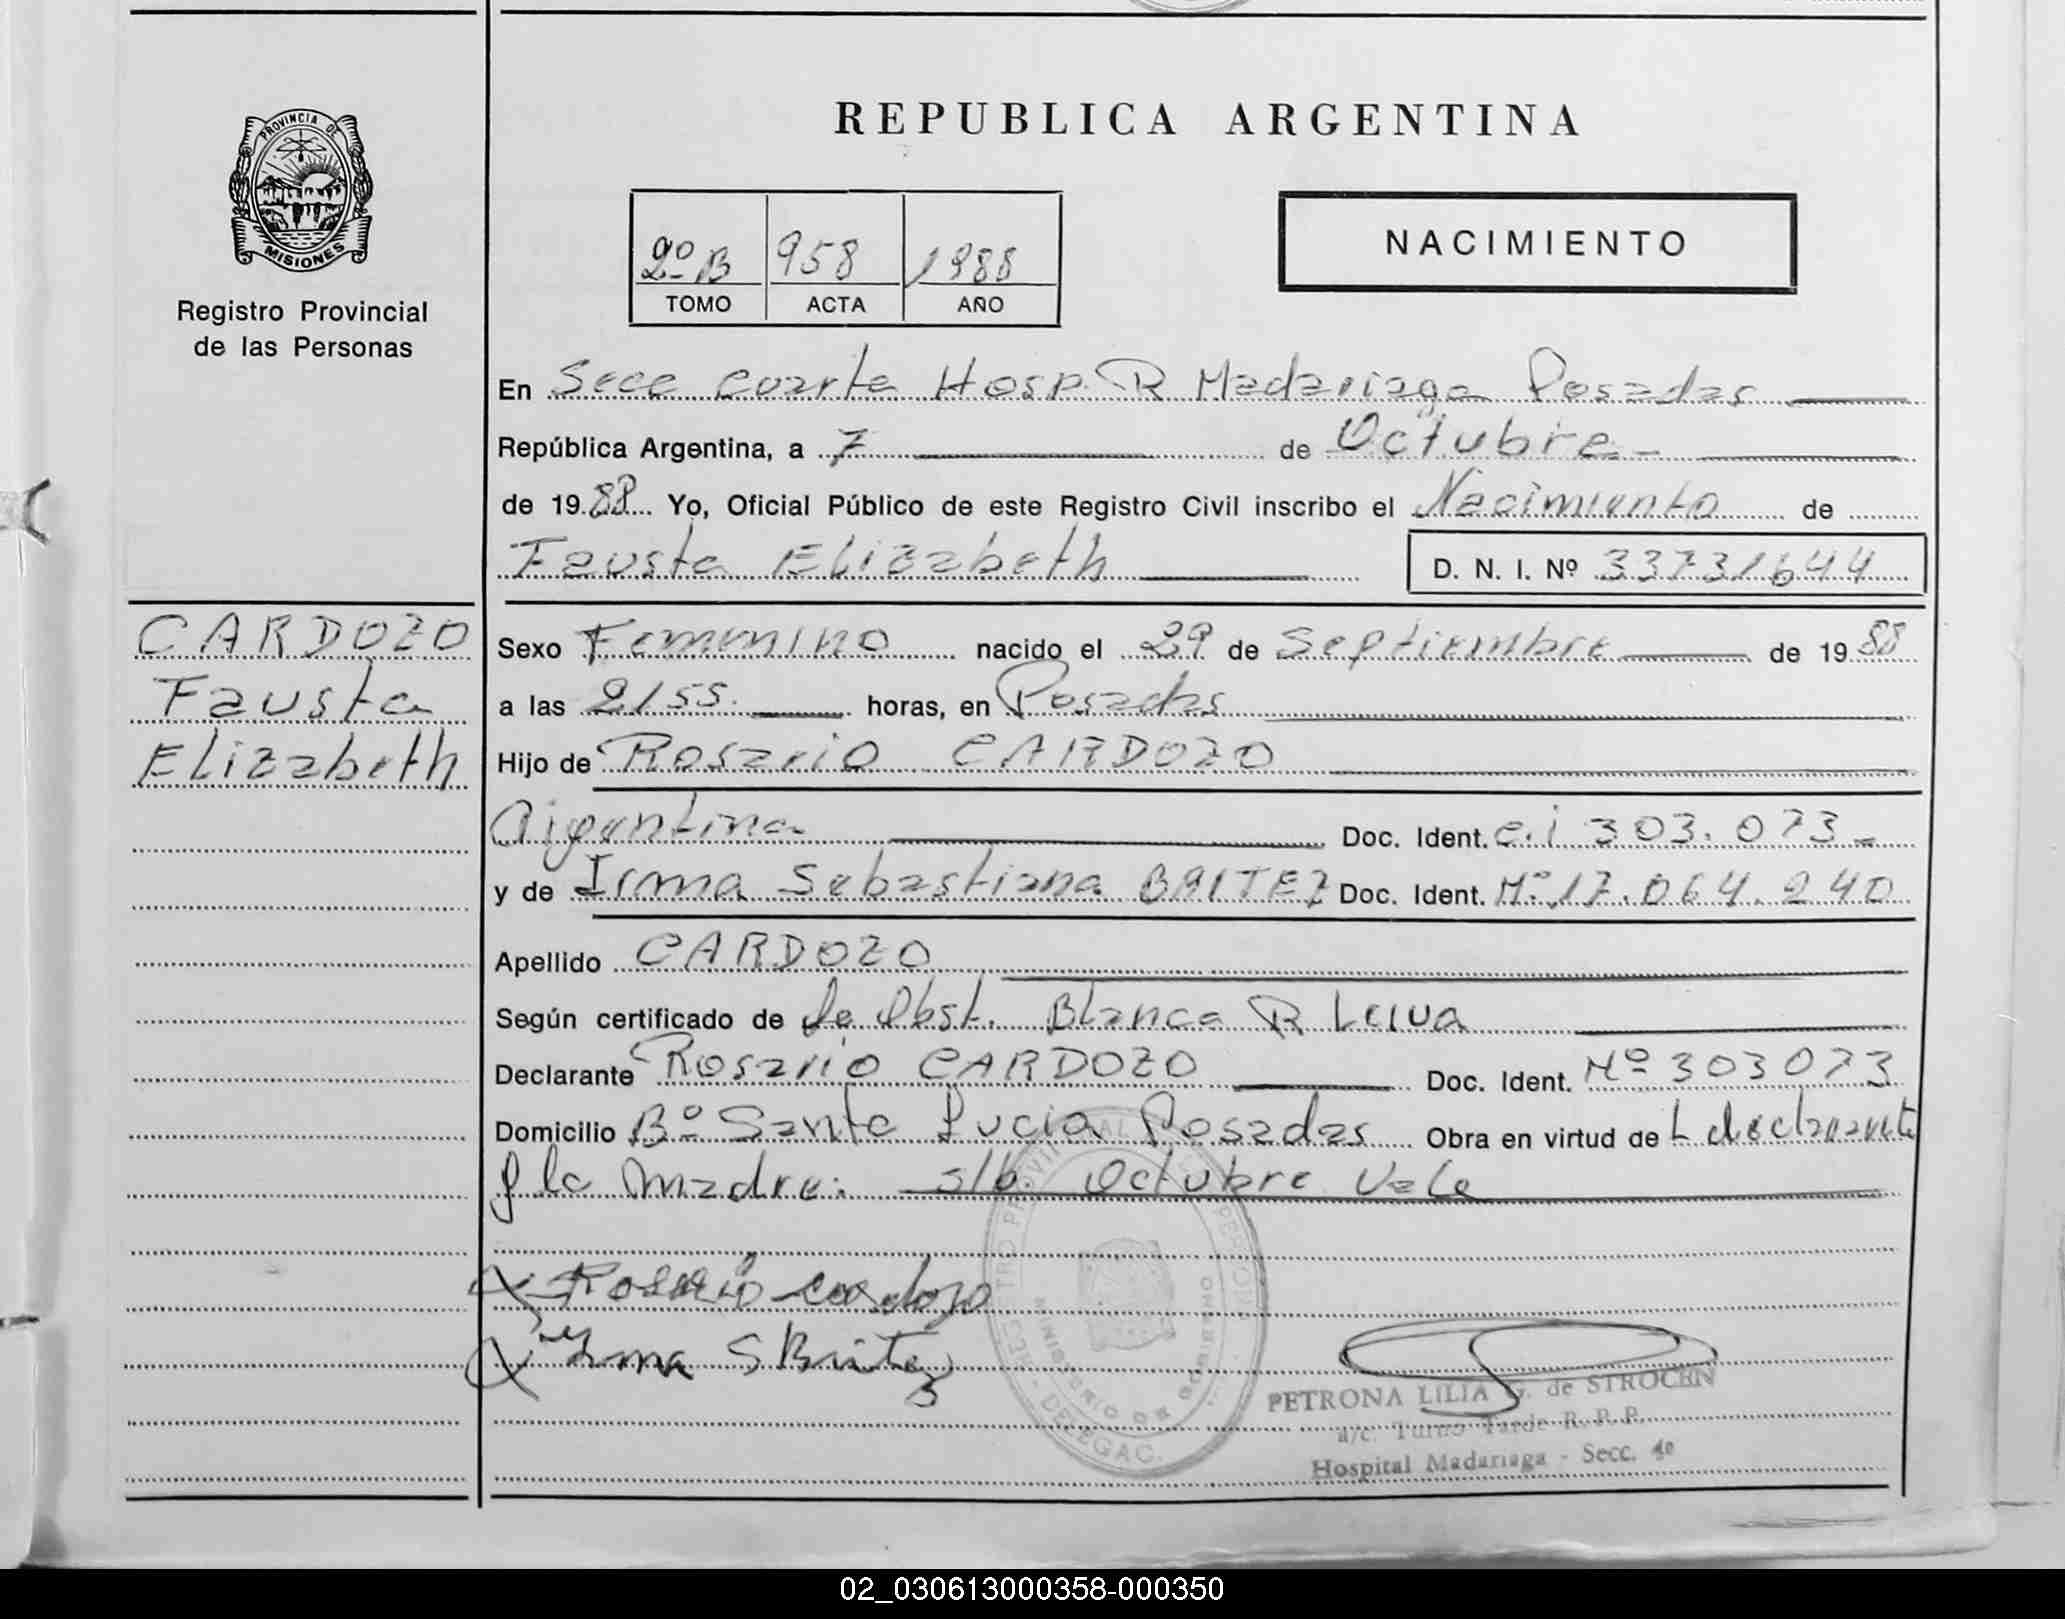 PROVINCIA DE
MISIONES
Registro Provincial
de las Personas
CARDOZO
Fausta
Elizabeth
REPUBLICA ARGENTINA
2º B 958 1988
TOMO ACTA AÑO
NACIMIENTO
En Secc cuarta Hosp. R Madariaga Posadas
República Argentina, a 7 de Octubre
de 1988 Yo, Oficial Público de este Registro Civil inscribo el Nacimiento de
Fausta Elizabeth D. N. I. Nº 33731644
Sexo Femenino nacido el 29 de Septiembre de 1988
a las 2155. horas, en Posadas
Hijo de Rosario CARDOZO
Argentina Doc. Ident. c.i 303.073
y de Irma Sebastiana BRITEZ Doc. Ident. Nº 17.064.240
Apellido CARDOZO
Según certificado de la Obst. Blanca R Leiva
Declarante Rosario CARDOZO Doc. Ident. Nº 303073
Domicilio Bº Santa Lucia Posadas Obra en virtud de L declarante
y la Madre: s/b. Octubre Vale
Rosario Cardozo
Irma S Britez
MINISTERIO DE GOBIERNO
DELEGAC.
PETRONA LILIA G. de STROCEN
a/c. Turno Tarde R. P. P.
Hospital Madariaga - Secc. 4º
02_030613000358-000350